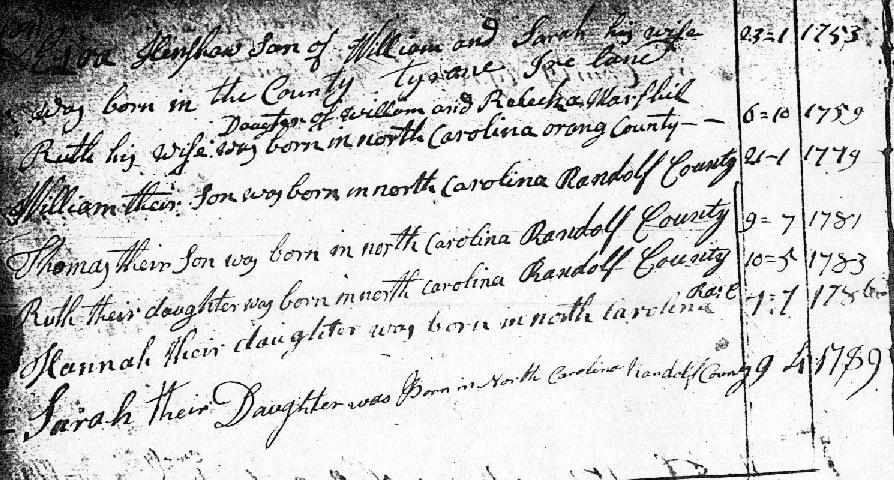 Henshaw Son of William and Sarah his wife 23=1 1753
was born in the County Tyrone Ire land
Daugter of William and Rebecka Marshil
Ruth his wife was born in north Carolina orang County - - 6=10 1759
William their Son was born in north Carolina Randolf County 21-1 1779
Thomas their Son was born in north Carolina Randolf County 9=7 1781
Ruth their daughter was born in north carolina Randolf County 10=5 1783
Hannah their daughter was born in north carolina 1786
Sarah their Daughter was Born in North Carolina Randolf County 9 4 1789